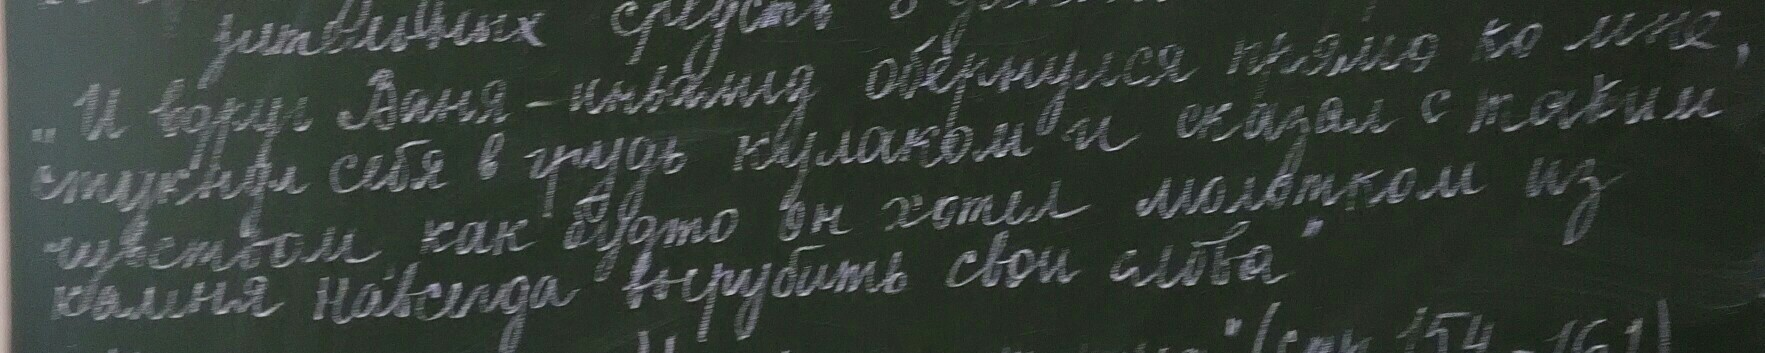 зительных средств в
„И вдруг Ваня-инвалид обернулся прямо ко мне,
стукнул себя в грудь кулаком и сказал с таким
чувством как будто он хотел молотком из
камня навсегда вырубить свои слова"
" (стр 154-161)